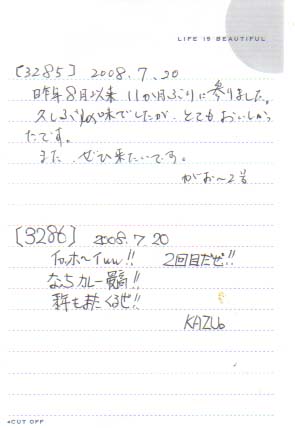 LIFE IS BEAUTIFUL
[3285] 2008.7.20
昨年8月以来 11か月ぶりに参りました。
久しぶりの味でしたが、とてもおいしかっ
たです。
また、ぜひ来たいです。
がお〜2号
[3286] 2008.7.20
イヤッホ〜イww!! 2回目だぜ!!
なちカレー最高!!
来年もまたくるぜ!!
KAZUo
◂CUT OFF